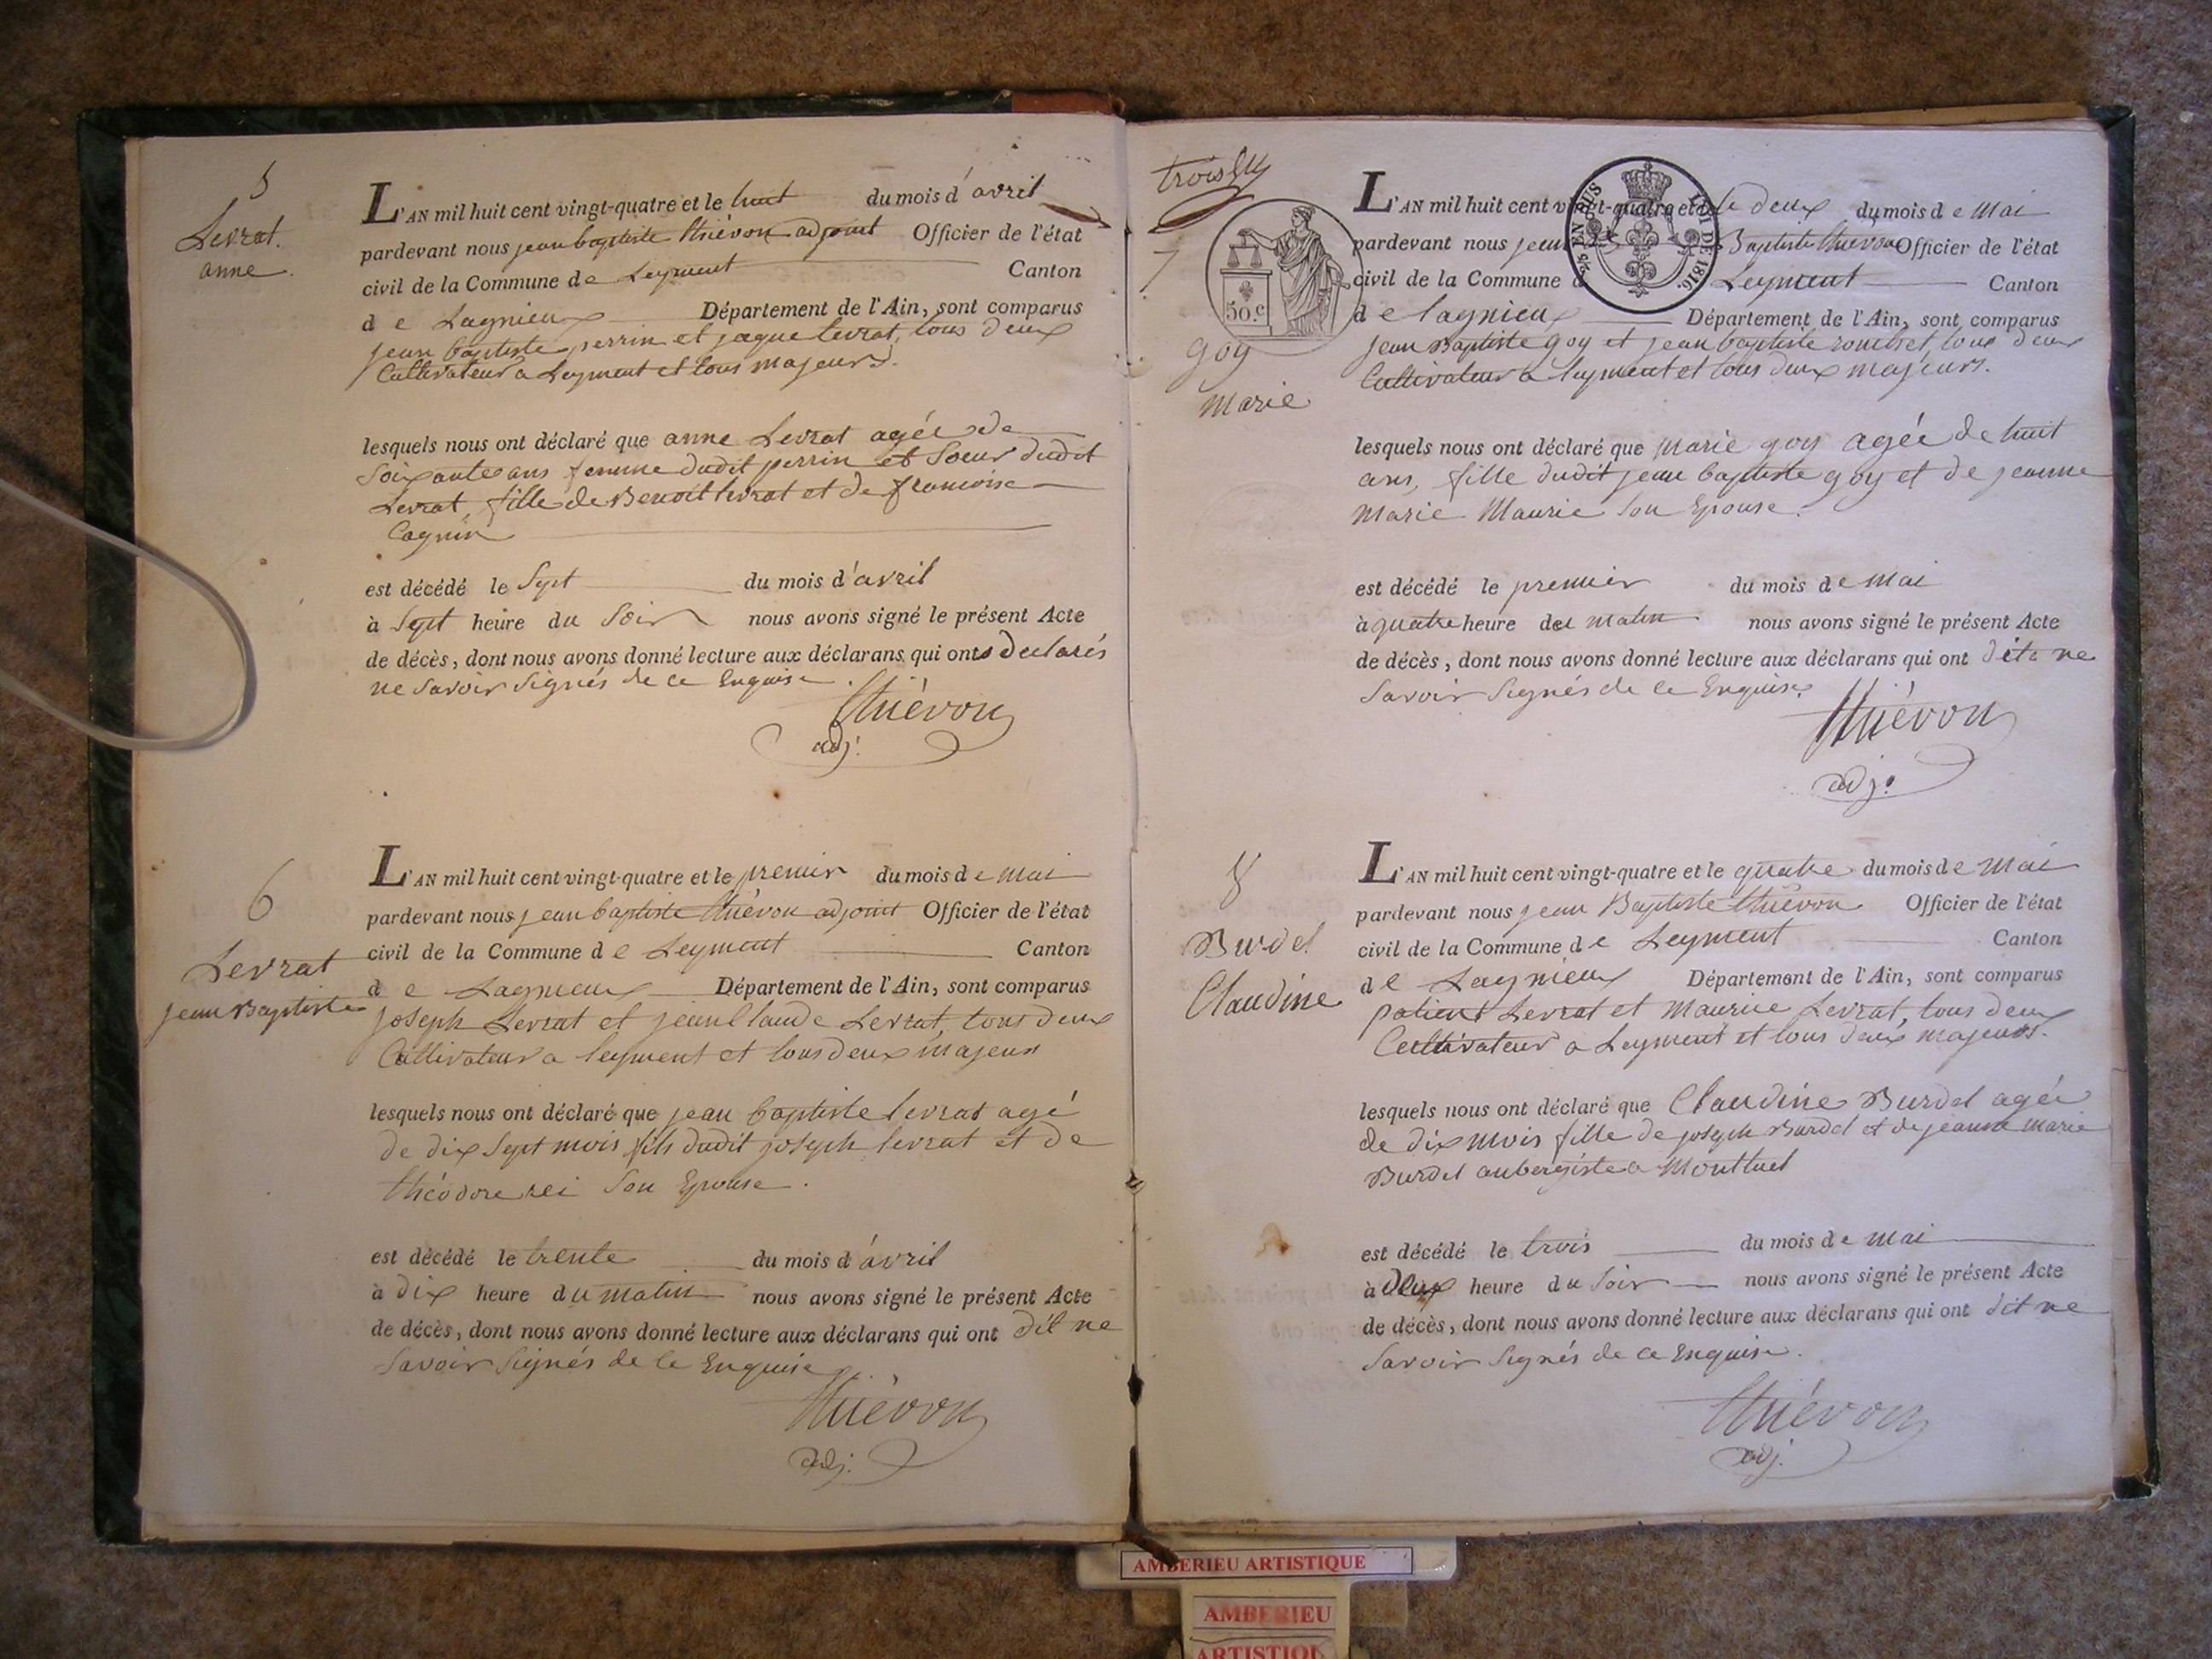 5
Levrat.
anne.
L'AN mil huit cent vingt-quatre et le huit du mois d'avril
pardevant nous jean baptiste thiévon adjoint Officier de l'état
civil de la Commune de Leyment Canton
de Lagnieu Département de l'Ain, sont comparus
jean baptiste perrin et jaque levrat, tous deux
Cultivateur a Leyment et tous majeurs.
lesquels nous ont déclaré que anne Levrat agée de
Soixante ans femme dudit perrin et Soeur dudit
Levrat, fille de Benoit levrat et de francoise
Cagnin
est décédé le Sept du mois d'avril
à Sept heure du Soir nous avons signé le présent Acte
de décès, dont nous avons donné lecture aux déclarans qui onts declarés
ne Savoir Signés de ce Enquise.
thiévon
adj.
6
Levrat
jean Baptiste
L'AN mil huit cent vingt-quatre et le premier du mois de mai
pardevant nous jean baptiste thiévon adjoint Officier de l'état
civil de la Commune de Leyment Canton
de Lagnieux Département de l'Ain, sont comparus
joseph Levrat et jean Claude Levrat, tous deux
Cultivateur a leyment et tous deux majeur
lesquels nous ont déclaré que jean baptiste levrat agé
de dix Sept mois fils dudit joseph levrat et de
théodore rei Son Epouse.
est décédé le trente du mois d'avril
à dix heure du matin nous avons signé le présent Acte
de décès, dont nous avons donné lecture aux déclarans qui ont dit ne
Savoir Signés de ce Enquise
thiévon
adj.
7
goy
marie
50.c
EN SUS
LOI DE 1816.
L'AN mil huit cent vingt-quatre et le deux du mois de mai
pardevant nous jean Baptiste thiévon Officier de l'état
civil de la Commune de Leyment Canton
de lagnieu Département de l'Ain, sont comparus
jean Baptiste goy et jean baptiste tous deux
Cultivateur a leyment et tous deux majeurs.
lesquels nous ont déclaré que marie goy agée de huit
ans, fille dudit jean baptiste goy et de jeanne
marie Maurie Son Epouse.
est décédé le premier du mois de mai
à quatre heure del matin nous avons signé le présent Acte
de décès, dont nous avons donné lecture aux déclarans qui ont dit ne
Savoir Signés de ce Enquise.
thiévon
adj.
8
Burdel
Claudine
L'AN mil huit cent vingt-quatre et le quatre du mois de mai
pardevant nous jean Baptiste thiévon Officier de l'état
civil de la Commune de Leyment Canton
de Lagnieux Département de l'Ain, sont comparus
patient Levrat et maurice Levrat, tous deux
Cultivateur a Leyment et tous deux majeurs.
lesquels nous ont déclaré que Claudine Burdel agée
de dix mois fille de joseph Burdel et de jeanne marie
Burdel aubergiste a Montluel
est décédé le trois du mois de mai
à deux heure du Soir nous avons signé le présent Acte
de décès, dont nous avons donné lecture aux déclarans qui ont dit ne
Savoir Signés de ce Enquise.
thiévon
adj.
AMBERIEU ARTISTIQUE
AMBERIEU
ARTISTIQU